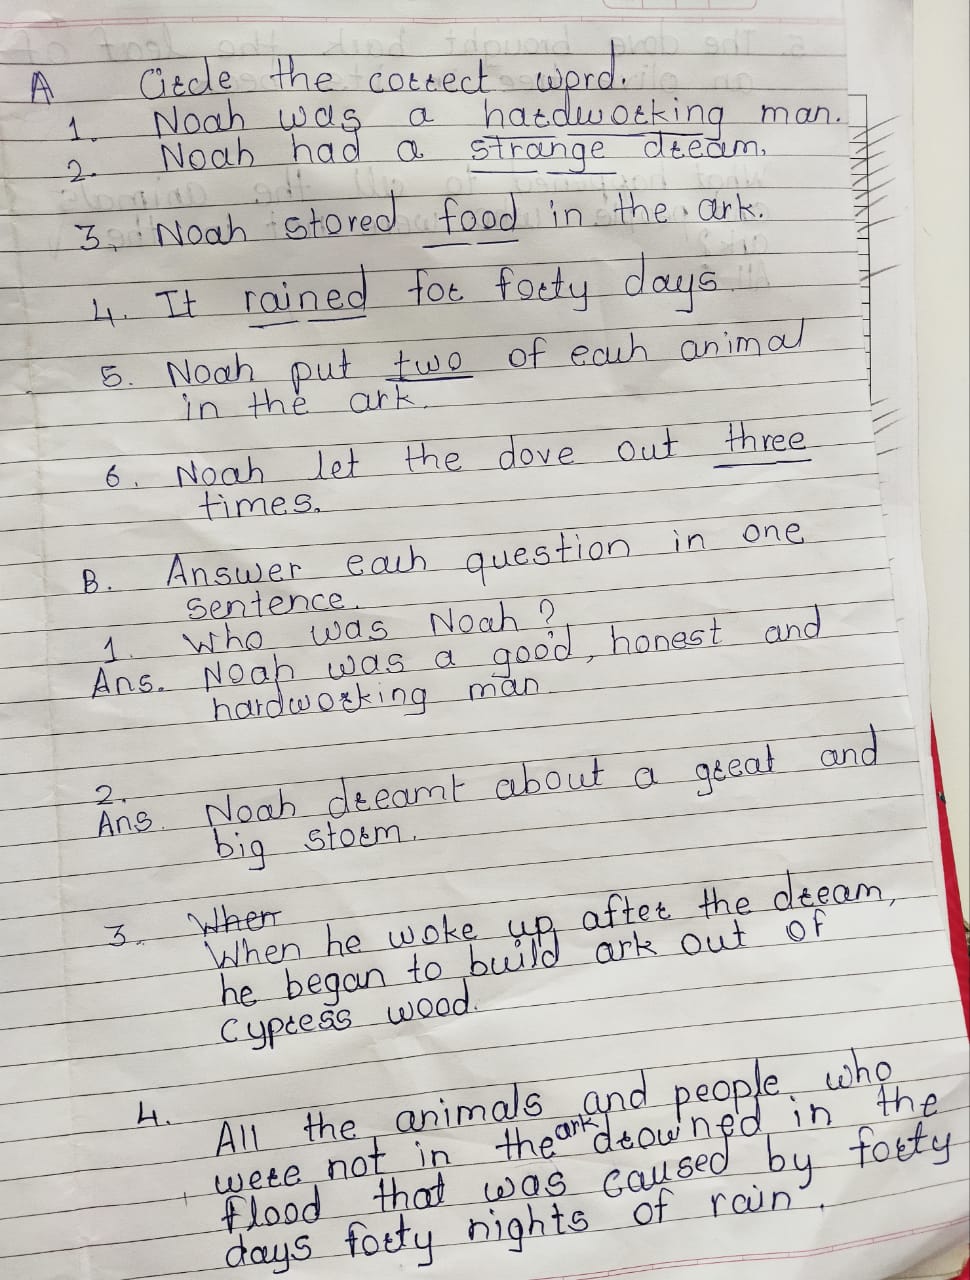 A Circle the correct word.
1. Noah was a hardworking man.
2. Noah had a strange dream.
3. Noah stored food in the ark.
4. It rained for forty days
5. Noah put two of each animal
in the ark.
6. Noah let the dove out three
times.
B. Answer each question in one
sentence.
1. Who was Noah?
Ans. Noah was a good, honest and
hardworking man
2.
Ans. Noah dreamt about a great and
big storm.
3. When
When he woke up after the dream,
he began to build ark out of
cypress wood.
4. All the animals and people who
were not in the ark drowned in the
flood that was caused by forty
days forty nights of rain.